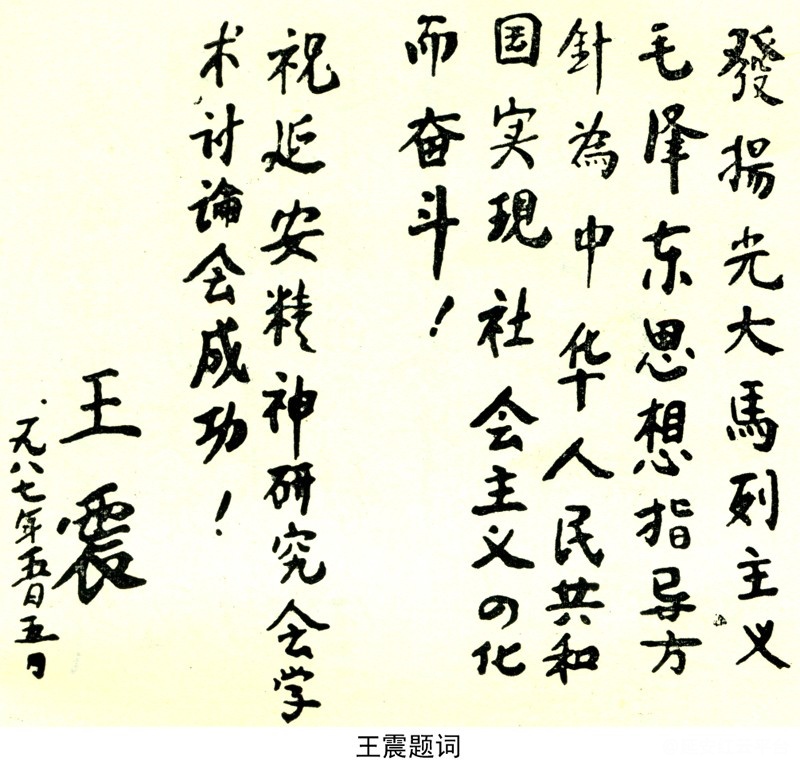 發揚光大馬列主义
毛泽东思想指导方
針為中华人民共和
国实現社会主义四化
而奋斗！
祝延安精神研究会学
术讨論会成功！
王震
一九八七年五月五日
王震题词